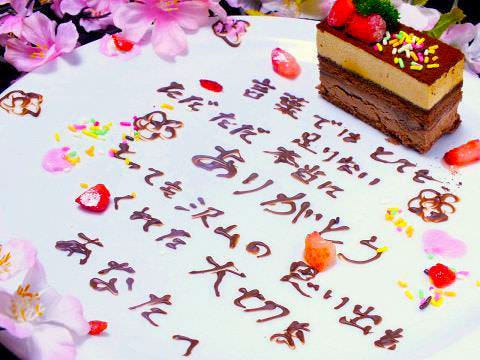 言葉ではとても
足りない
ただただ本当に
ありがとう
とっても沢山の思い出を
くれた大切な
あなたへ